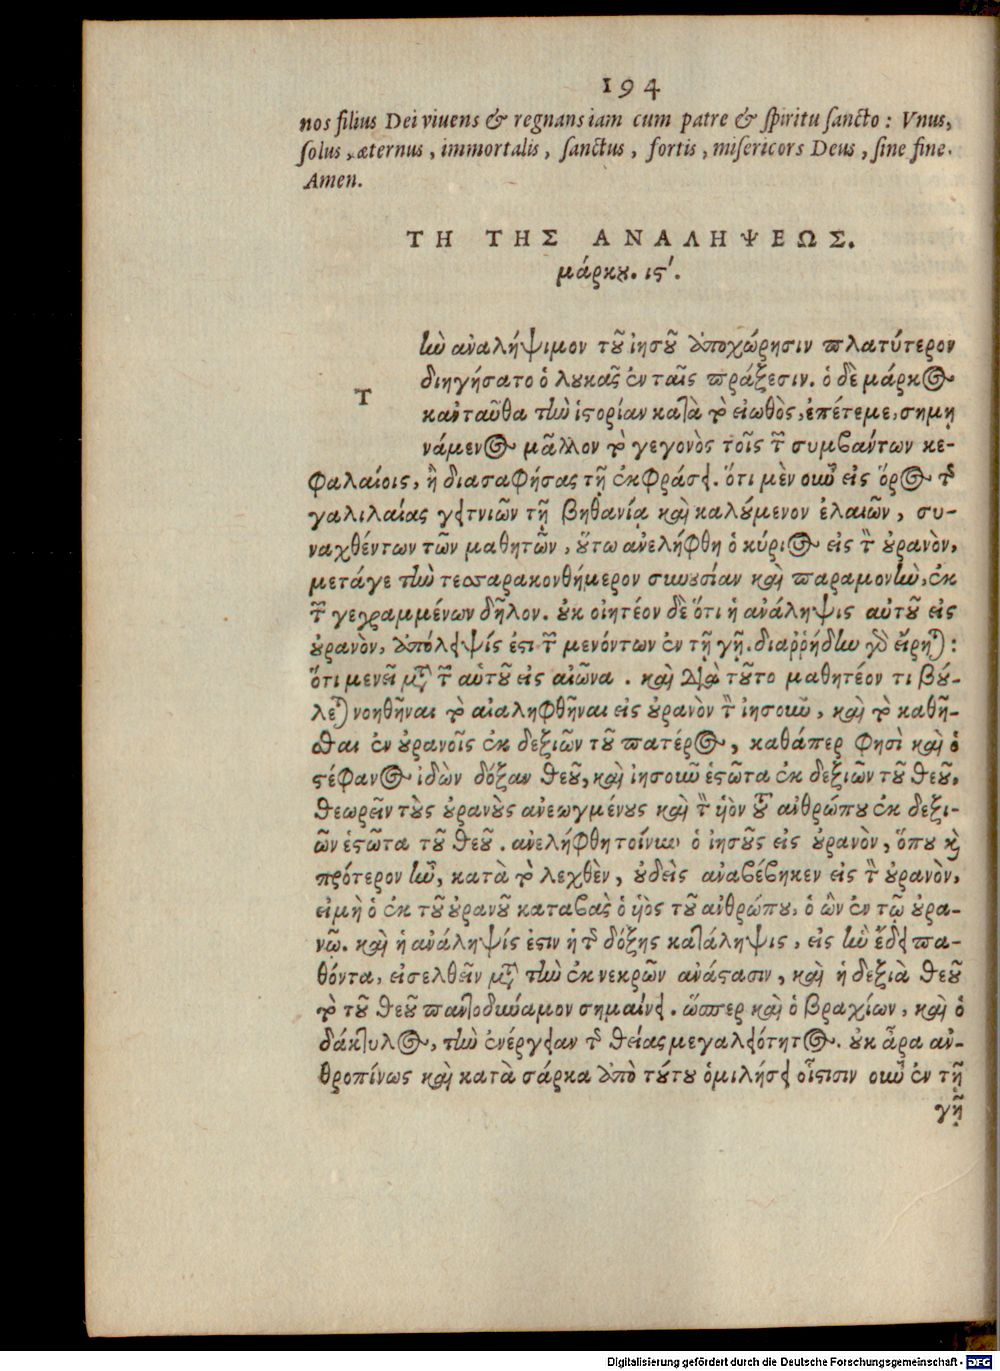 194
nos filius Dei viuens & regnans iam cum patre & spiritu sancto: Vnus,
solus, æternus, immortalis, sanctus, fortis, misericors Deus, sine fine.
Amen.
ΤΗ ΤΗΣ ΑΝΑΛΗΨΕΩΣ.
μάρκου. ις'.
Τ
ὴν ἀναλήψιμον τοῦ ἰησοῦ ὑποχώρησιν πλατύτερον
διηγήσατο ὁ λουκᾶς ἐν ταῖς πράξεσιν. ὁ δὲ μάρκος
κἀνταῦθα τὴν ἱστορίαν κατὰ τὸ εἰωθὸς, ἐπέτεμε, σημη
νάμενος μᾶλλον τὸ γεγονὸς τοῖς τῶν συμβάντων κε-
φαλαίοις, ἢ διασαφήσας τῇ ἐκφράσει. ὅτι μὲν οὖν εἰς ὅρος τῆς
γαλιλαίας γειτνιῶν τῇ βηθανίᾳ καὶ καλούμενον ἐλαιῶν, συ-
ναχθέντων τῶν μαθητῶν, οὕτω ἀνελήφθη ὁ κύριος εἰς τὸν οὐρανὸν,
μετάγε τὴν τεσσαρακονθήμερον συνουσίαν καὶ παραμονὴν, ἐκ
τῶν γεγραμμένων δῆλον. οὐκ οἰητέον δὲ ὅτι ἡ ἀνάληψις αὐτοῦ εἰς
οὐρανὸν, ἀπόλειψίς ἐστι τῶν μενόντων ἐν τῇ γῇ. διαῤῥήδην γὰρ εἴρηται:
ὅτι μενεῖ μετὰ τῶν αὑτοῦ εἰς αἰῶνα. καὶ διὰ τοῦτο μαθητέον τι βού-
λεται νοηθῆναι τὸ αἰαληφθῆναι εἰς οὐρανὸν τὸν ἰησοῦν, καὶ τὸ καθῆ-
σθαι ἐν οὐρανοῖς ἐκ δεξιῶν τοῦ πατέρος, καθάπερ φησὶ καὶ ὁ
στέφανος ἰδὼν δόξαν θεοῦ, καὶ ἰησοῦν ἑστῶτα ἐκ δεξιῶν τοῦ θεοῦ,
θεωρεῖν τοὺς οὐρανοὺς ἀνεωγμένους καὶ τὸν υἱὸν τοῦ ἀνθρώπου ἐκ δεξι-
ῶν ἑστῶτα τοῦ θεοῦ. ἀνελήφθη τοίνυν ὁ ἰησοῦς εἰς οὐρανὸν, ὅπου καὶ
πρότερον ἦν, κατὰ τὸ λεχθὲν, οὐδεὶς ἀναβέβηκεν εἰς τὸν οὐρανὸν,
εἰμὴ ὁ ἐκ τοῦ οὐρανοῦ καταβὰς ὁ υἱὸς τοῦ ἀνθρώπου, ὁ ὢν ἐν τῷ οὐρα-
νῷ. καὶ ἡ ἀνάληψίς ἐστιν ἡ τῆς δόξης κατάληψις, εἰς ἣν ἔδει πα-
θόντα, εἰσελθεῖν μετὰ τὴν ἐκ νεκρῶν ἀνάστασιν, καὶ ἡ δεξιὰ θεοῦ
τὸ τοῦ θεοῦ παντοδύναμον σημαίνει. ὥσπερ καὶ ὁ βραχίων, καὶ ὁ
δάκτυλος, τὴν ἐνέργειαν τῆς θείας μεγαλειότητος. οὐκ ἆρα ἀν-
θροπίνως καὶ κατὰ σάρκα ἀπὸ τούτου ὁμιλήσει οἷστισιν οὖν ἐν τῇ
γῇ
Digitalisierung gefördert durch die Deutsche Forschungsgemeinschaft - DFG